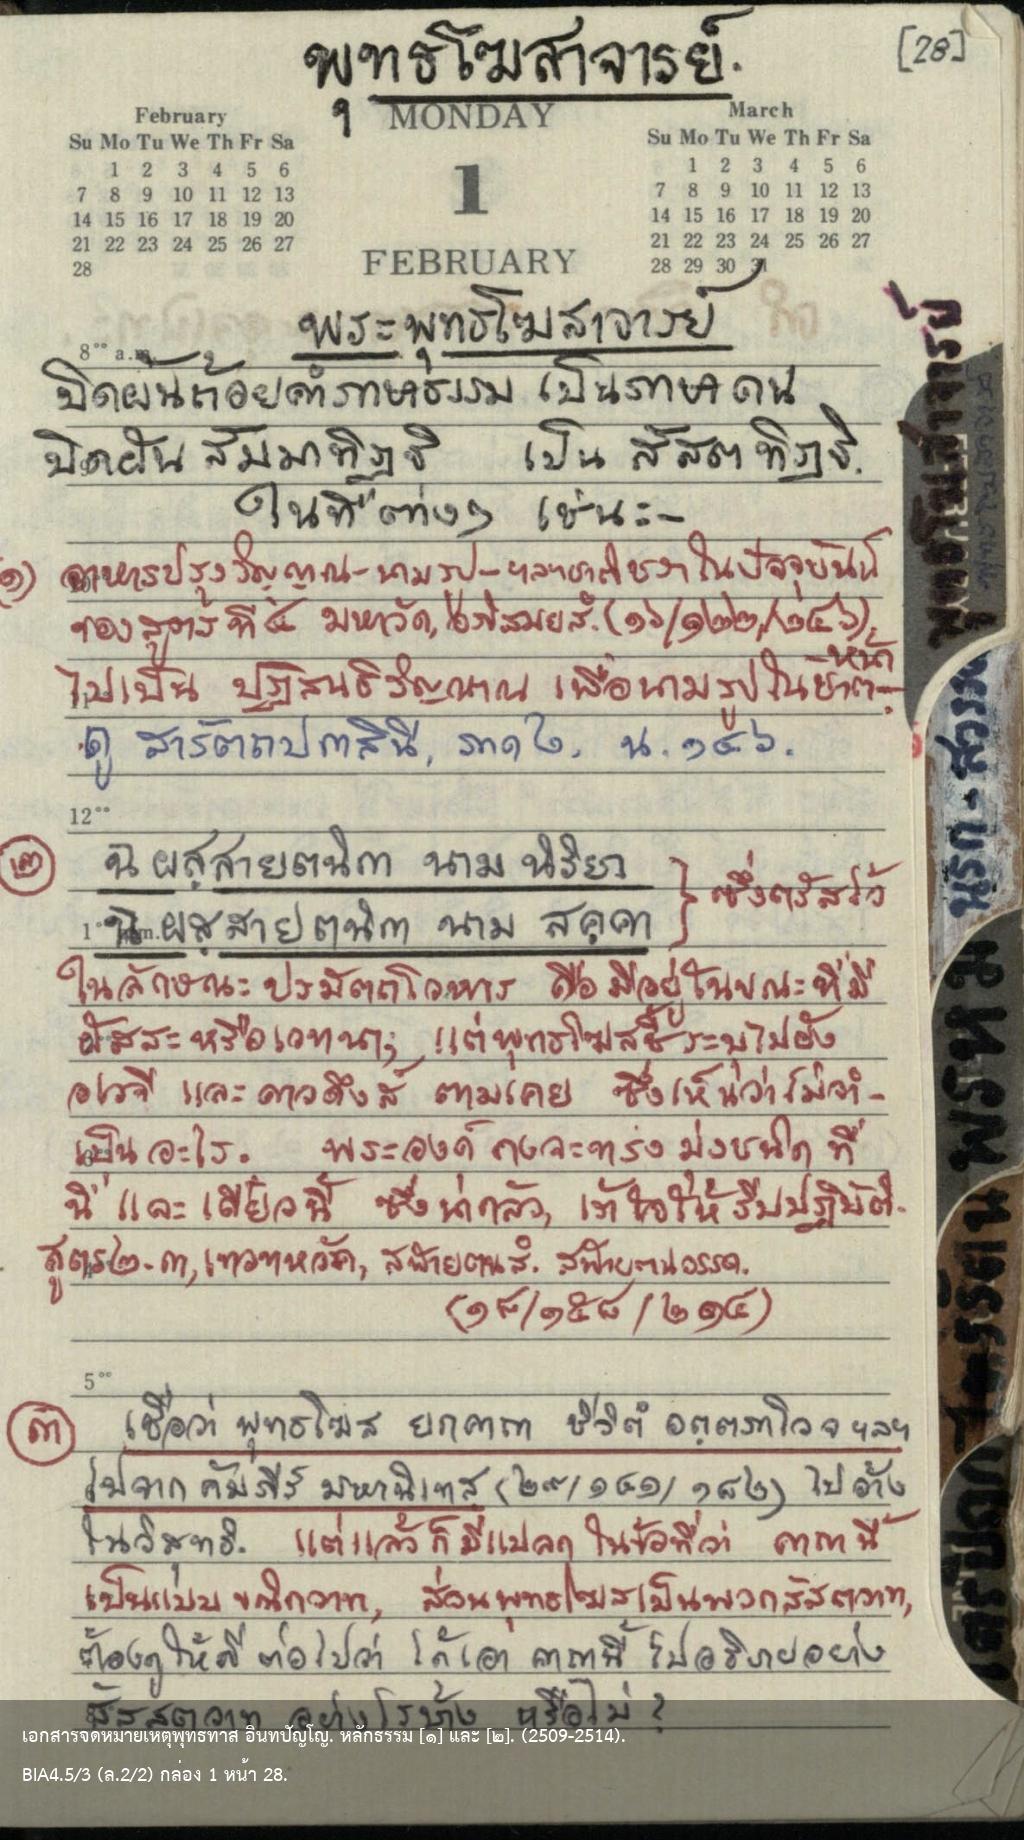 พุทธโฆสาจารย์.
[28]
February
Su Mo Tu We Th Fr Sa
1 2 3 4 5 6
7 8 9 10 11 12 13
14 15 16 17 18 19 20
21 22 23 24 25 26 27
28
MONDAY
1
FEBRUARY
March
Su Mo Tu We Th Fr Sa
1 2 3 4 5 6
7 8 9 10 11 12 13
14 15 16 17 18 19 20
21 22 23 24 25 26 27
28 29 30 31
พระพุทธโฆสาจารย์
8°° a.m.
บิดผันถ้อยคำภาษาธรรม เป็นภาษาคน
บิดผัน สัมมาทิฏฐิ เป็น สัสสตทิฏฐิ.
ในที่ต่างๆ เช่น:-
(๑) อาหารปรุงวิญญาณ-นามรูป- ในปัจจุบันนี้
ของสูตรที่ ๔ มหาวัค, อภิสมยสํ. (๑๖/๑๒๒/๒๔๖),
ไปเป็น ปฏิสนธิวิญญาณ เพื่อนามรูปในชาติหน้า-
ดู สารัตถปกาสินี, ภาค ๒. น. ๑๔๖.
12°°
๒ ฉ ผสฺสายตนิกา นาม นิริยา
ฉ ผสฺสายตนิกา นาม สคฺคา } ซึ่งตรัสไว้
ในลักษณะปรมัตถโวหาร คือมีอยู่ในขณะที่มี
ผัสสะหรือเวทนา; แต่พุทธโฆสชี้ระบุไปยัง
อเวจี และดาวดึงส์ ตามเคย ซึ่งเห็นว่าไม่จำ-
เป็นอะไร. พระองค์คงจะทรงมุ่งชนิดที่
นี่ และเดี๋ยวนี้ ซึ่งน่ากลัว, เร้าใจให้รีบปฏิบัติ.
สูตร ๒-๓, เทวทหวัค, สฬายตนสํ. สฬายตนวรรค.
(๑๘/๑๕๘/๒๑๔)
5°°
๓ เชื่อว่า พุทธโฆส ยกคาถา ชีวิตํ อตฺตภาโว จ ฯลฯ
ไปจาก คัมภีร์ มหานิเทส (๒๙/๑๔๑/๑๘๒) ไปอ้าง
ในวิสุทธิ. แต่แล้วก็มีแปลก ในข้อที่ว่า คาถานี้
เป็นแบบขณิกวาท, ส่วนพุทธโฆสเป็นพวกสัสสตวาท,
ต้องดูให้ดี ต่อไปว่า ได้เอา คาถานี้ ไปอธิบายอย่าง
สัสสตวาท อย่างไรบ้าง หรือไม่?
พุทธโฆสาจารย์
นรก-สวรรค์
พรหม
ไตรปิฎก ไตรรัตน์
เอกสารจดหมายเหตุพุทธทาส อินทปัญโญ. หลักธรรม [๑] และ [๒]. (2509-2514).
BIA4.5/3 (ล.2/2) กล่อง 1 หน้า 28.